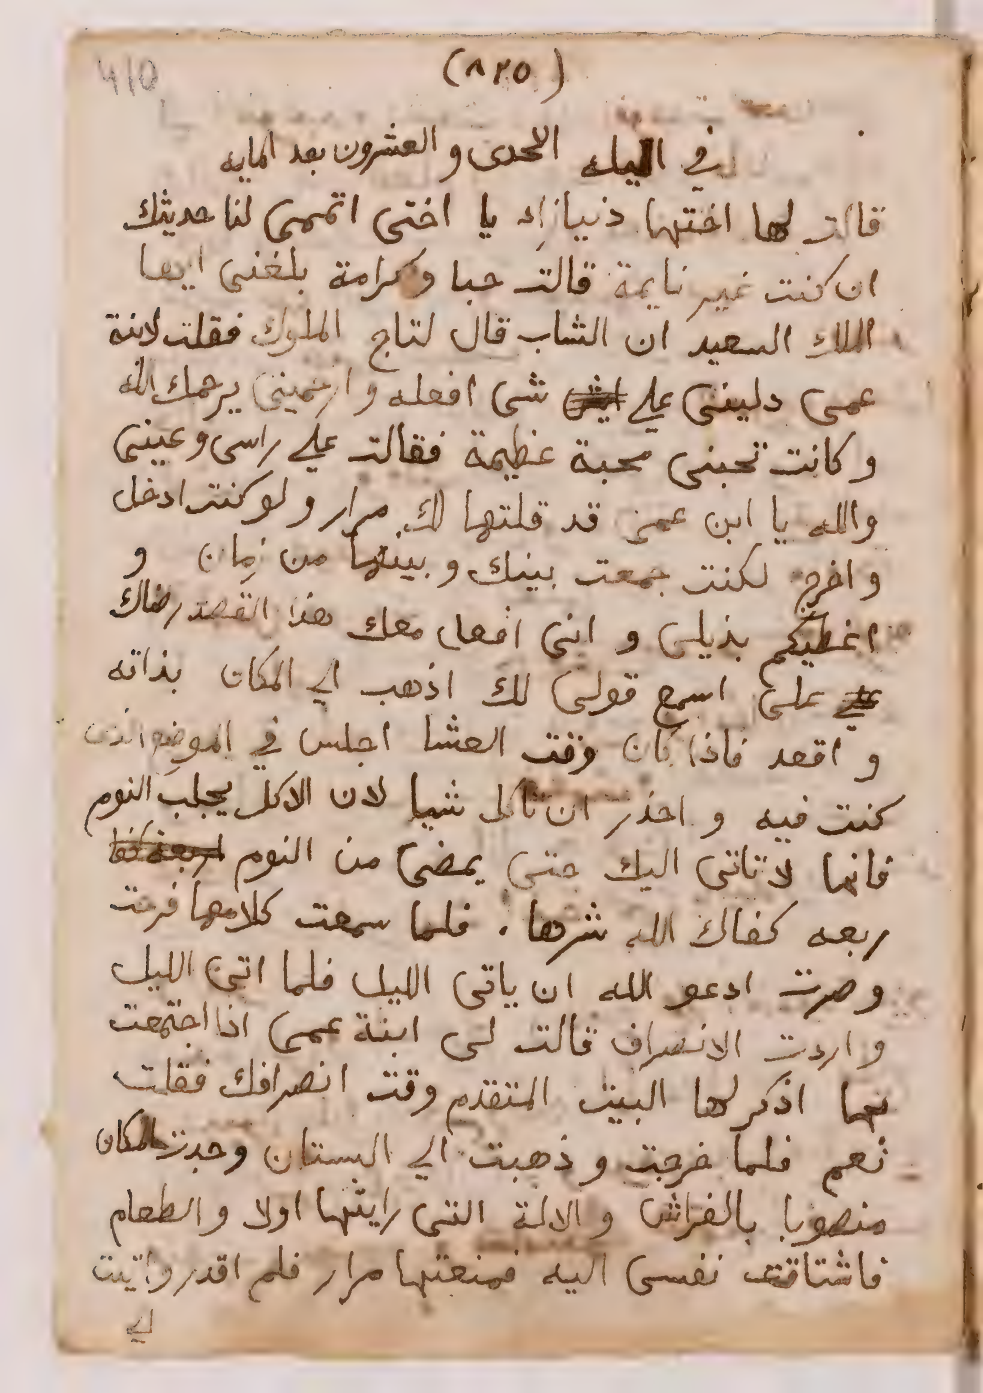 410
(٨٢٥)
في اليله الاحدى و العشرون بعد المايه
قالت لها اختها دنيازاد يا اختى اتممى لنا حديثك
ان كنت غير نايمة قالت حبا و كرامة بلغنى ايها
الملك السعيد ان الشاب قال لتاج الملوك فقلت لابنة
عمى دلينى علي شى افعله و ارحمينى يرحمك الله
و كانت تحبنى محبة عظيمة فقالت علي راسى و عينى
والله يا ابن عمى قد قلتها لك مرار و لو كنت ادخل
و اخرج لكنت جمعت بينك و بينها من زمان و
اغطيكم بذيلى و انى افعل معك هذا القصد رضاك
على اسمع قولى لك اذهب الي المكان بذاته
و اقعد فاذا كان وقت العشا اجلس في الموضع الذى
كنت فيه و احذر ان تاكل شيا لان الاكل يجلب النوم
فانها لا تاتى اليك حتى يمضى من النوم
ربعه كفاك الله شرها . فلما سمعت كلامها فرحت
و صرت ادعو الله ان ياتى الليل فلما اتى الليل
و اردت الانصراف قالت لى ابنة عمى اذا اجتمعت
بها اذكر لها البيت المتقدم وقت انصرافك فقلت
نعم فلما خرجت و ذهبت الي البستان وجدت المكان
منصوبا بالفراش و الالة التى رايتها اولا و الطعام
فاشتاقت نفسى اليه فمنعتها مرار فلم اقدر واتيت
الي